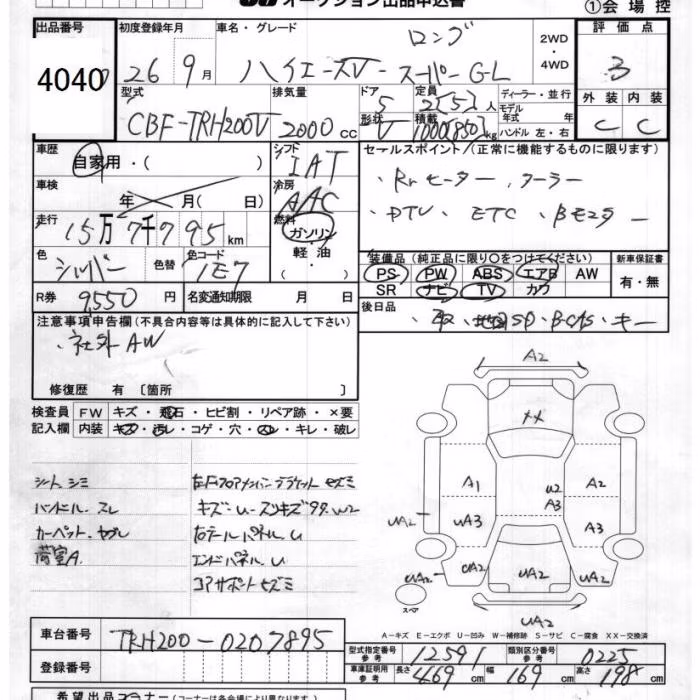 オークション出品申込書
①会場控
出品番号
4040
初度登録年月
26 9月
車名・グレード
ロング
ハイエースV-スーパーG-L
2WD
・
4WD
評価点
3
外装 内装
C C
型式
CBF-TRH200V
排気量
2000cc
ドア
5
形状
V
定員
2(5)人
積載
1000(850)kg
ディーラー・並行
モデル
年式 年
ハンドル 左・右
車歴
自家用・( )
シフト
IAT
車検
年 月( 日)
冷房
AAC
走行
15万7千795km
燃料
ガソリン
・
軽油
・( )
色
シルバー
色替
色コード
1E7
R券
9,550円
名変通知期限 月 日
セールスポイント/(正常に機能するものに限ります)
・Rrヒーター,クーラー
・DTV、ETC、Bモニター
装備品(純正品に限り○をつけてください)
PS PW ABS エアB AW
SR ナビ TV カワ
新車保証書
有・無
後日品
注意事項申告欄(不具合内容等は具体的に記入して下さい)
・社外AW
修復歴 有〔箇所 〕
検査員 FW キズ・飛石・ヒビ割・リペア跡・×要
記入欄 内装 キズ・汚レ・コゲ・穴・スレ・キレ・破レ
シートシミ
ハンドル.スレ
カーペット.ヤブレ
荷室A.
左Fフロアメンバーブラケットセズミ
キズ・U・スリキズ99.W2
右テールパネルU
エンドパネルU
コアサポートセズミ
A2
××
A1
W2
A3
A2
UA2
UA3
A3
UA2
UA2
UA2
UA2
UA2
スペア
UA2
A-キズ E-エクボ U-凹み W-補修跡 S-サビ C-腐食 XX-交換済
車台番号
TRH200-0207895
登録番号
型式指定番号
参考
12591
類別区分番号
参考
0225
車庫証明用
参考
長さ 469cm 幅 169cm 高さ 198cm
希望出品コーナー(コーナーは各会場により